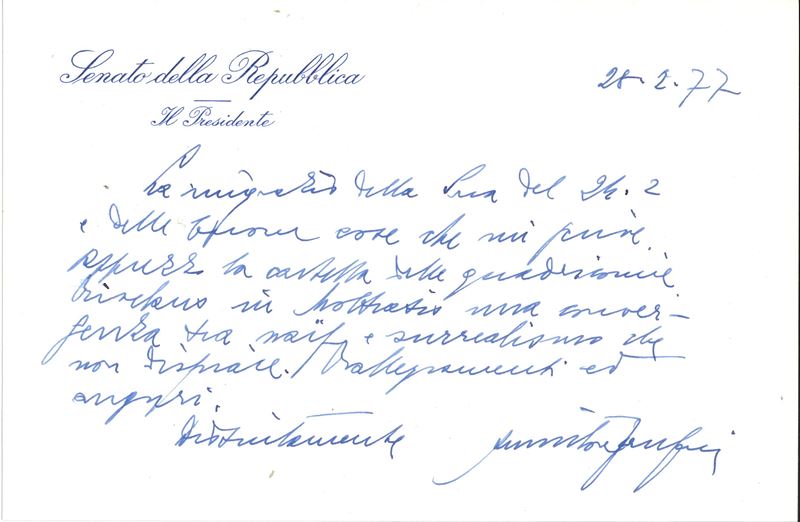 Senato della Repubblica
Il Presidente
28.2.77
La ringrazio della Sua del 24.2
e delle buone cose che mi scrive.
Apprezzo la cartella delle quadricromie
rivelano in una conver-
genza tra naïf e surrealismo che
non dispiace. Rallegramenti ed
auguri.
Distintamente